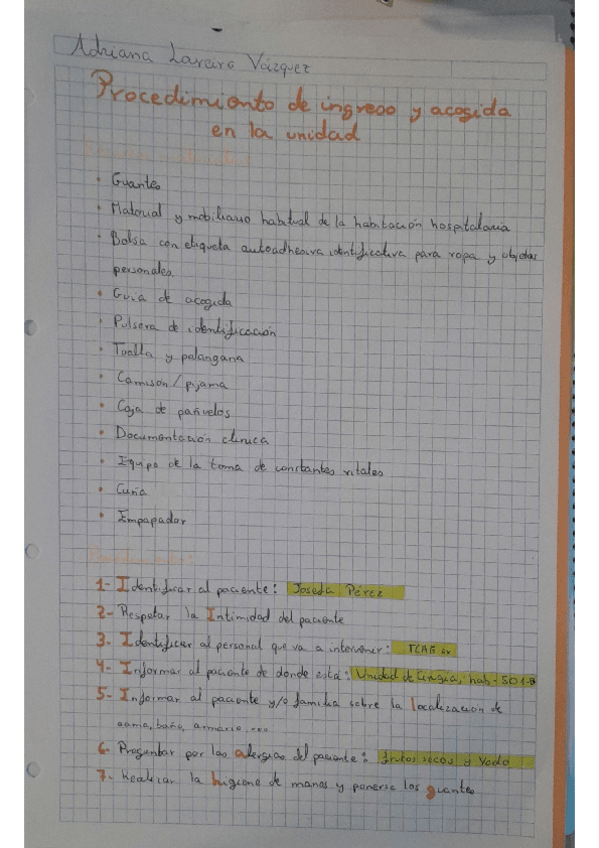 Adriana Lareiro Vázquez
Procedimiento de ingreso y acogida
en la unidad
• Guantes
• Material y mobiliario habitual de la habitación hospitalaria
• Bolsa con etiqueta autoadhesiva identificativa para ropa y objetos
personales.
• Guía de acogida
• Pulsera de identificación
• Toalla y palangana
• Camisón / pijama
• Caja de pañuelos
• Documentación clínica
• Equipo de la toma de constantes vitales
• Cuña
• Empapador
1- Identificar al paciente: Josefa Pérez
2- Respetar la Intimidad del paciente
3- Identificar al personal que va a intervenir: TCAE
4- Informar al paciente de donde está: Unidad de Cirugía, hab- 501-B
5- Informar al paciente y/o familia sobre la localización de
cama, baño, armario, ...
6- Preguntar por las alergias del paciente: frutos secos y Yodo
7- Realizar la higiene de manos y ponerse los guantes